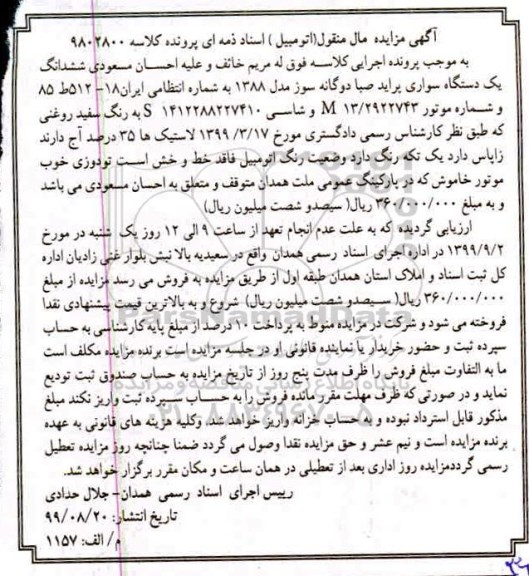 آگهی مزایده مال منقول(اتومبیل ) اسناد ذمه ای پرونده کلاسه ۹۸۰۲۸۰۰
به موجب پرونده اجرایی کلاسه فوق له مریم خائف و علیه احسان مسعودی ششدانگ
یک دستگاه سواری پراید صبا دوگانه سوز مدل ۱۳۸۸ به شماره انتظامی ایران۱۸- ۵۱۲ط ۸۵
و شماره موتور ۱۳/۲۹۲۲۷۴۳ M و شاسی S ۱۴۱۲۲۸۸۲۲۷۴۱۰ به رنگ سفید روغنی
که طبق نظر کارشناس رسمی دادگستری مورخ ۱۳۹۹/۳/۱۷ لاستیک ها ۳۵ درصد آج دارند
زاپاس دارد یک تکه رنگ دارد وضعیت رنگ اتومبیل فاقد خط و خش است تودوزی خوب
موتور خاموش که در پارکینگ عمومی ملت همدان متوقف و متعلق به احسان مسعودی می باشد
و به مبلغ ۳۶۰/۰۰۰/۰۰۰ ریال( سیصدو شصت میلیون ریال)
ارزیابی گردیده که به علت عدم انجام تعهد از ساعت ۹ الی ۱۲ روز یک شنبه در مورخ
۱۳۹۹/۹/۲ در اداره اجرای اسناد رسمی همدان واقع در سعیدیه بالا نبش بلوار غنی زادیان اداره
کل ثبت اسناد و املاک استان همدان طبقه اول از طریق مزایده به فروش می رسد مزایده از مبلغ
۳۶۰/۰۰۰/۰۰۰ ریال( سیصدو شصت میلیون ریال) شروع و به بالاترین قیمت پیشنهادی نقدا
فروخته می شود و شرکت در مزایده منوط به پرداخت ۱۰ درصد از مبلغ پایه کارشناسی به حساب
سپرده ثبت و حضور خریدار یا نماینده قانونی او در جلسه مزایده است برنده مزایده مکلف است
ما به التفاوت مبلغ فروش را ظرف مدت پنج روز از تاریخ مزایده به حساب صندوق ثبت تودیع
نماید و در صورتی که ظرف مهلت مقرر مانده فروش را به حساب سپرده ثبت واریز نکند مبلغ
مذکور قابل استرداد نبوده و به حساب خزانه واریز خواهد شد. وکلیه هزینه های قانونی به عهده
برنده مزایده است و نیم عشر و حق مزایده نقدا وصول می گردد ضمنا چنانچه روز مزایده تعطیل
رسمی گرددمزایده روز اداری بعد از تعطیلی در همان ساعت و مکان مقرر برگزار خواهد شد.
رییس اجرای اسناد رسمی همدان- جلال حدادی
تاریخ انتشار: ۹۹/۰۸/۲۰
م/ الف: ۱۱۵۷
ParsNamadData
پایگاه اطلاع رسانی مناقصه و مزایده
۰۲۱-۸۸۳۴۹۶۷۰-۵